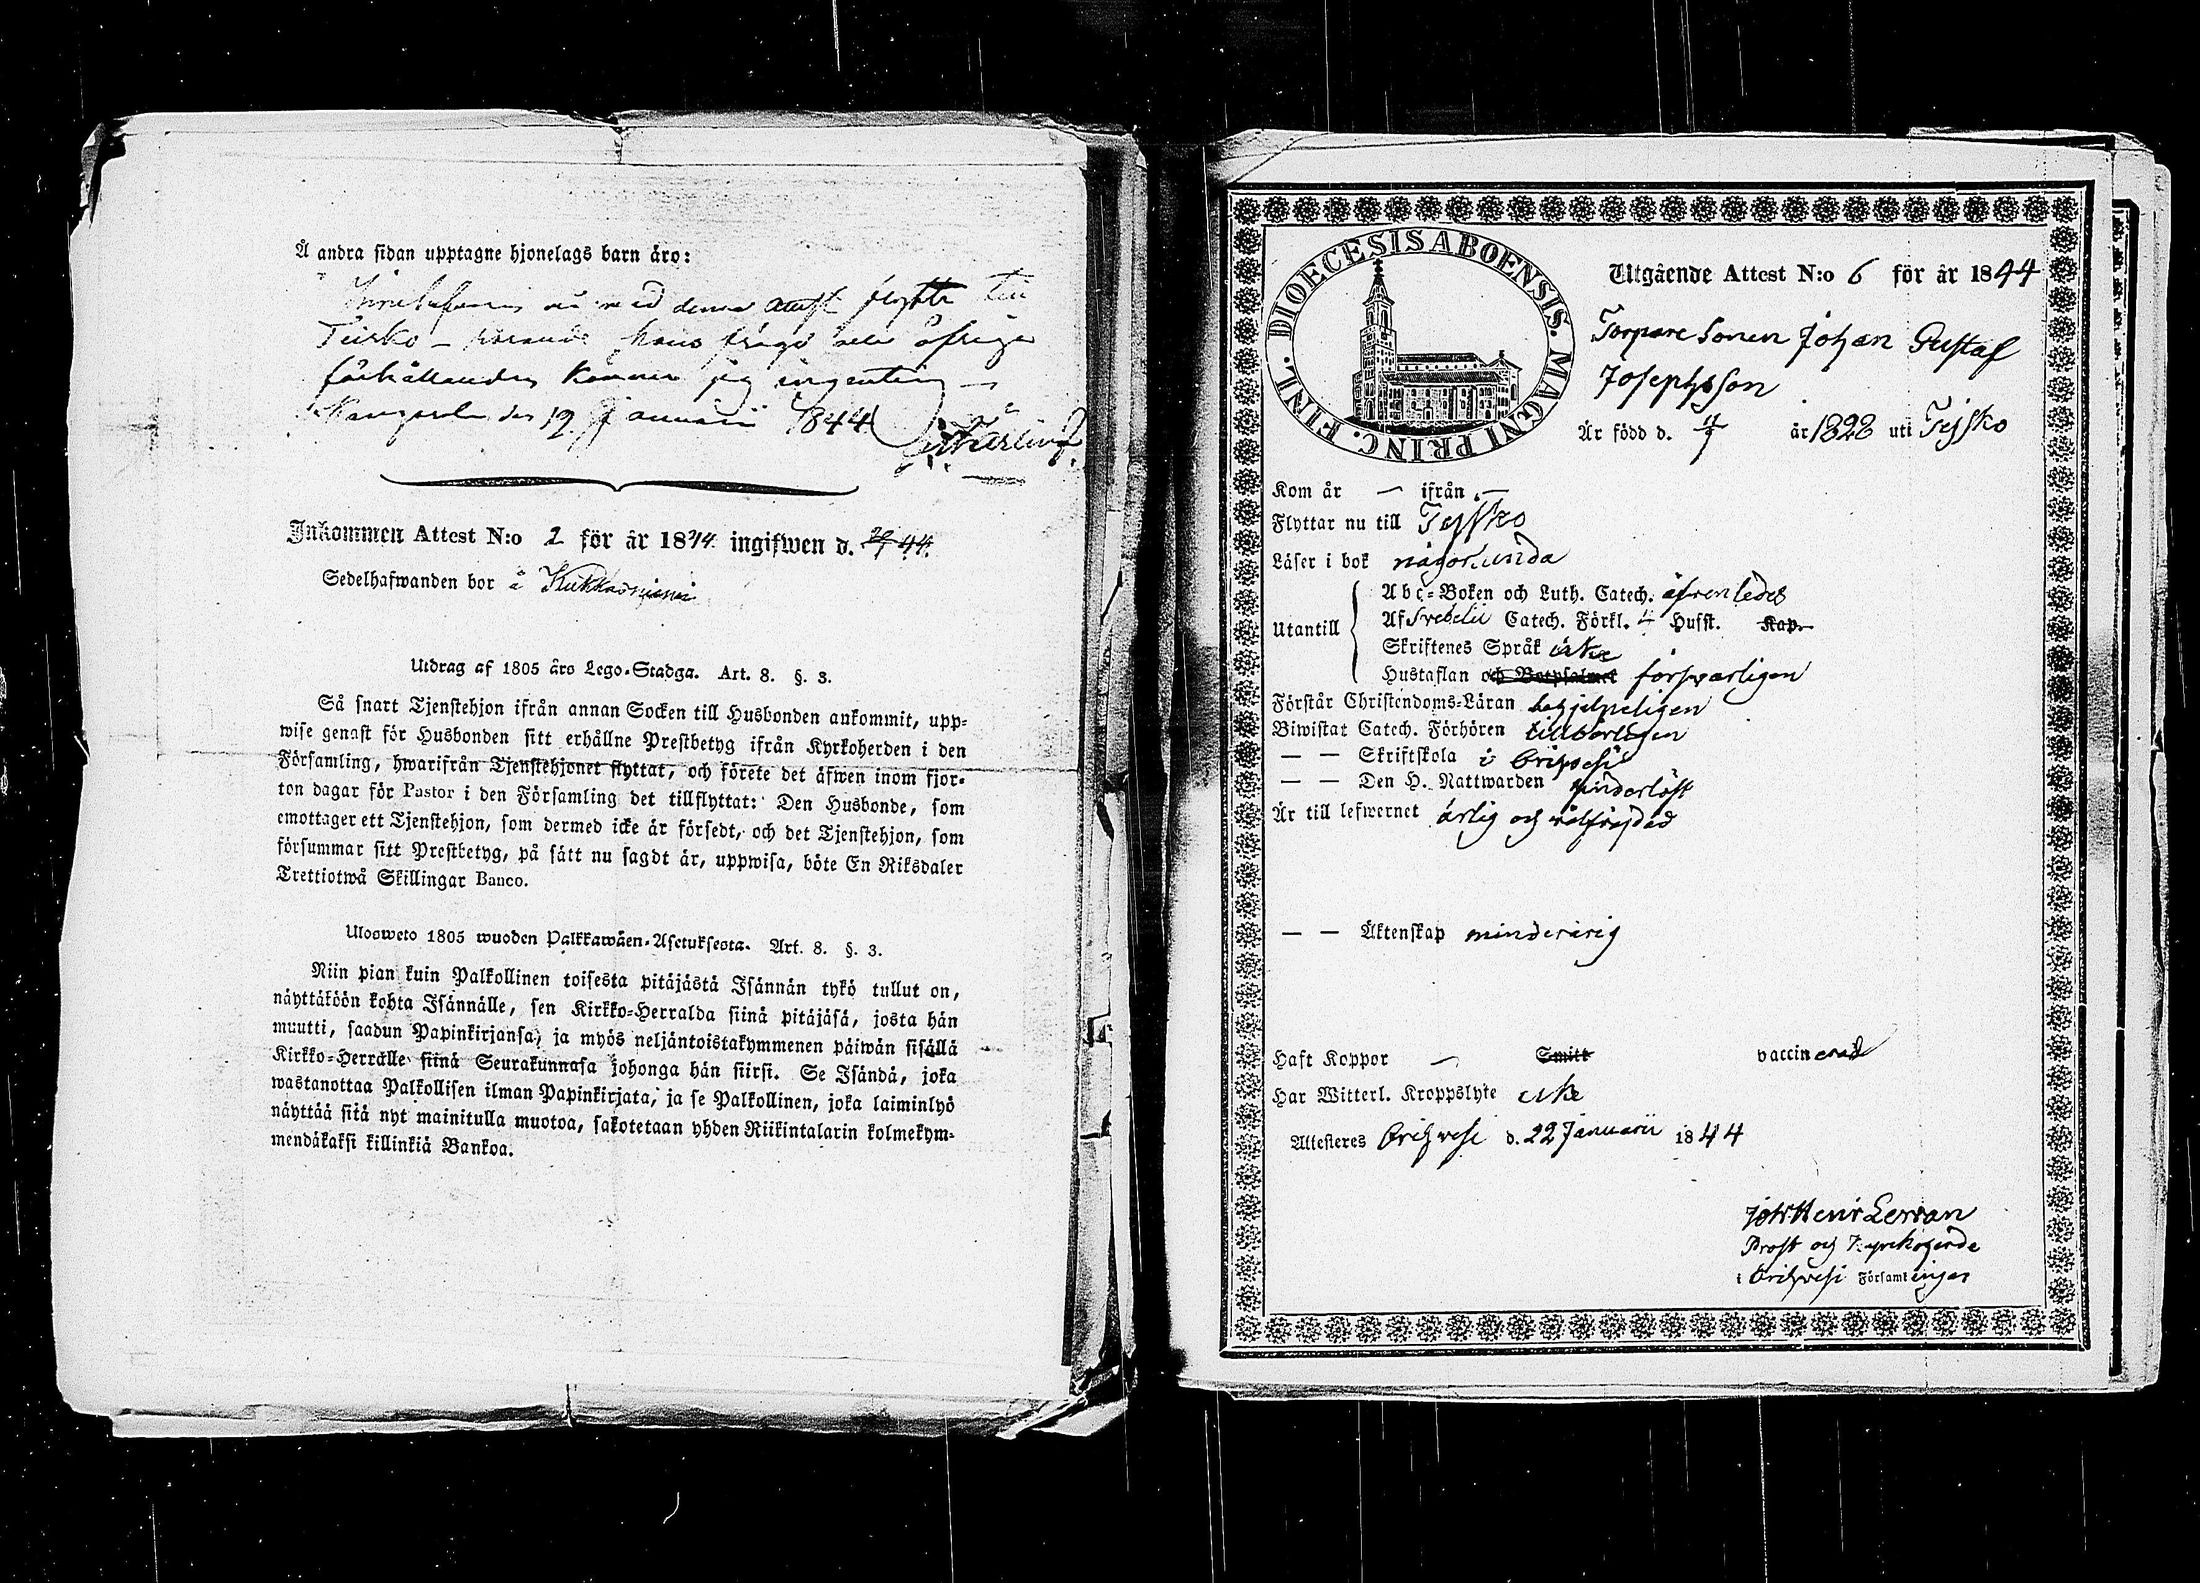 Å andra sidan upptagne hjonelags barn äro:
med denna attest flytta till
Teisko – hans frejd eller öfriga
förhållanden känner jag ingenting –
den 19 Januarii 1844
Inkommen Attest N:o 2 för år 1844. ingifwen d. 44.
Sedelhafwanden bor å Kukkoniemi
Utdrag af 1805 års Lego-Stadga. Art. 8. §. 3.
Så snart Tjenstehjon ifrån annan Socken till Husbonden ankommit, upp-
wise genast för Husbonden sitt erhållne Prestbetyg ifrån Kyrkoherden i den
Församling, hwarifrån Tjenstehjonet flyttat, och förete det äfwen inom fjor-
ton dagar för Pastor i den Församling det tillflyttat: Den Husbonde, som
emottager ett Tjenstehjon, som dermed icke är försedt, och det Tjenstehjon, som
försummar sitt Prestbetyg, på sätt nu sagdt är, uppwisa, böte En Riksdaler
Trettiotwå Skillingar Banco.
Ulosweto 1805 wuoden Palkkawäen-Asetuksesta. Art. 8. §. 3.
Niin pian kuin Palkollinen toisesta pitäjästä Isännän tykö tullut on,
näyttäköön kohta Isännälle, sen Kirkko-Herralda siinä pitäjäsä, josta hän
muutti, saadun Papinkirjansa, ja myös neljäntoistakymmenen päiwän sisällä
Kirkko-Herralle siinä Seurakunnasa johonga hän siirsi. Se Isändä, joka
wastanottaa Palkollisen ilman Papinkirjata, ja se Palkollinen, joka laiminlyö
näyttää sitä nyt mainitulla muotoa, sakotetaan yhden Riikintalarin kolmekym-
mendäkaksi killinkiä Bankoa.
DIOECESIS ABOENSIS. MAGNI PRINC. FINL.
Utgående Attest N:o 6 för år 1844
Torpare Sonen Johan Gustaf
Josephsson
Är född d. år 1828 uti Tejsko
Kom år – ifrån –
Flyttar nu till Tejsko
Läser i bok någorlunda
Utantill
Abc-Boken och Luth. Catech. äfvenledes
Af Svebelii Catech. Förkl. Husst. Kap.
Skriftenes Språk icke
Hustaflan och Botpsalmer försvarligen
Förstår Christendoms-Läran behjelpeligen
Biwistat Catech. Förhören tillbörligen
— — Skriftskola i Orihvesi
— — Den H. Nattwarden hinderlöst
Är till lefwernet ärlig och välfrejdad
— — Äktenskap minderårig
Haft Koppor – Smitt vaccinerad
Har Witterl. Kroppslyte icke
Attesteres Orihvesi d. 22 Januarii 1844
Joh. Henr
Prost och Kyrkoherde
i Orihvesi Församlingar